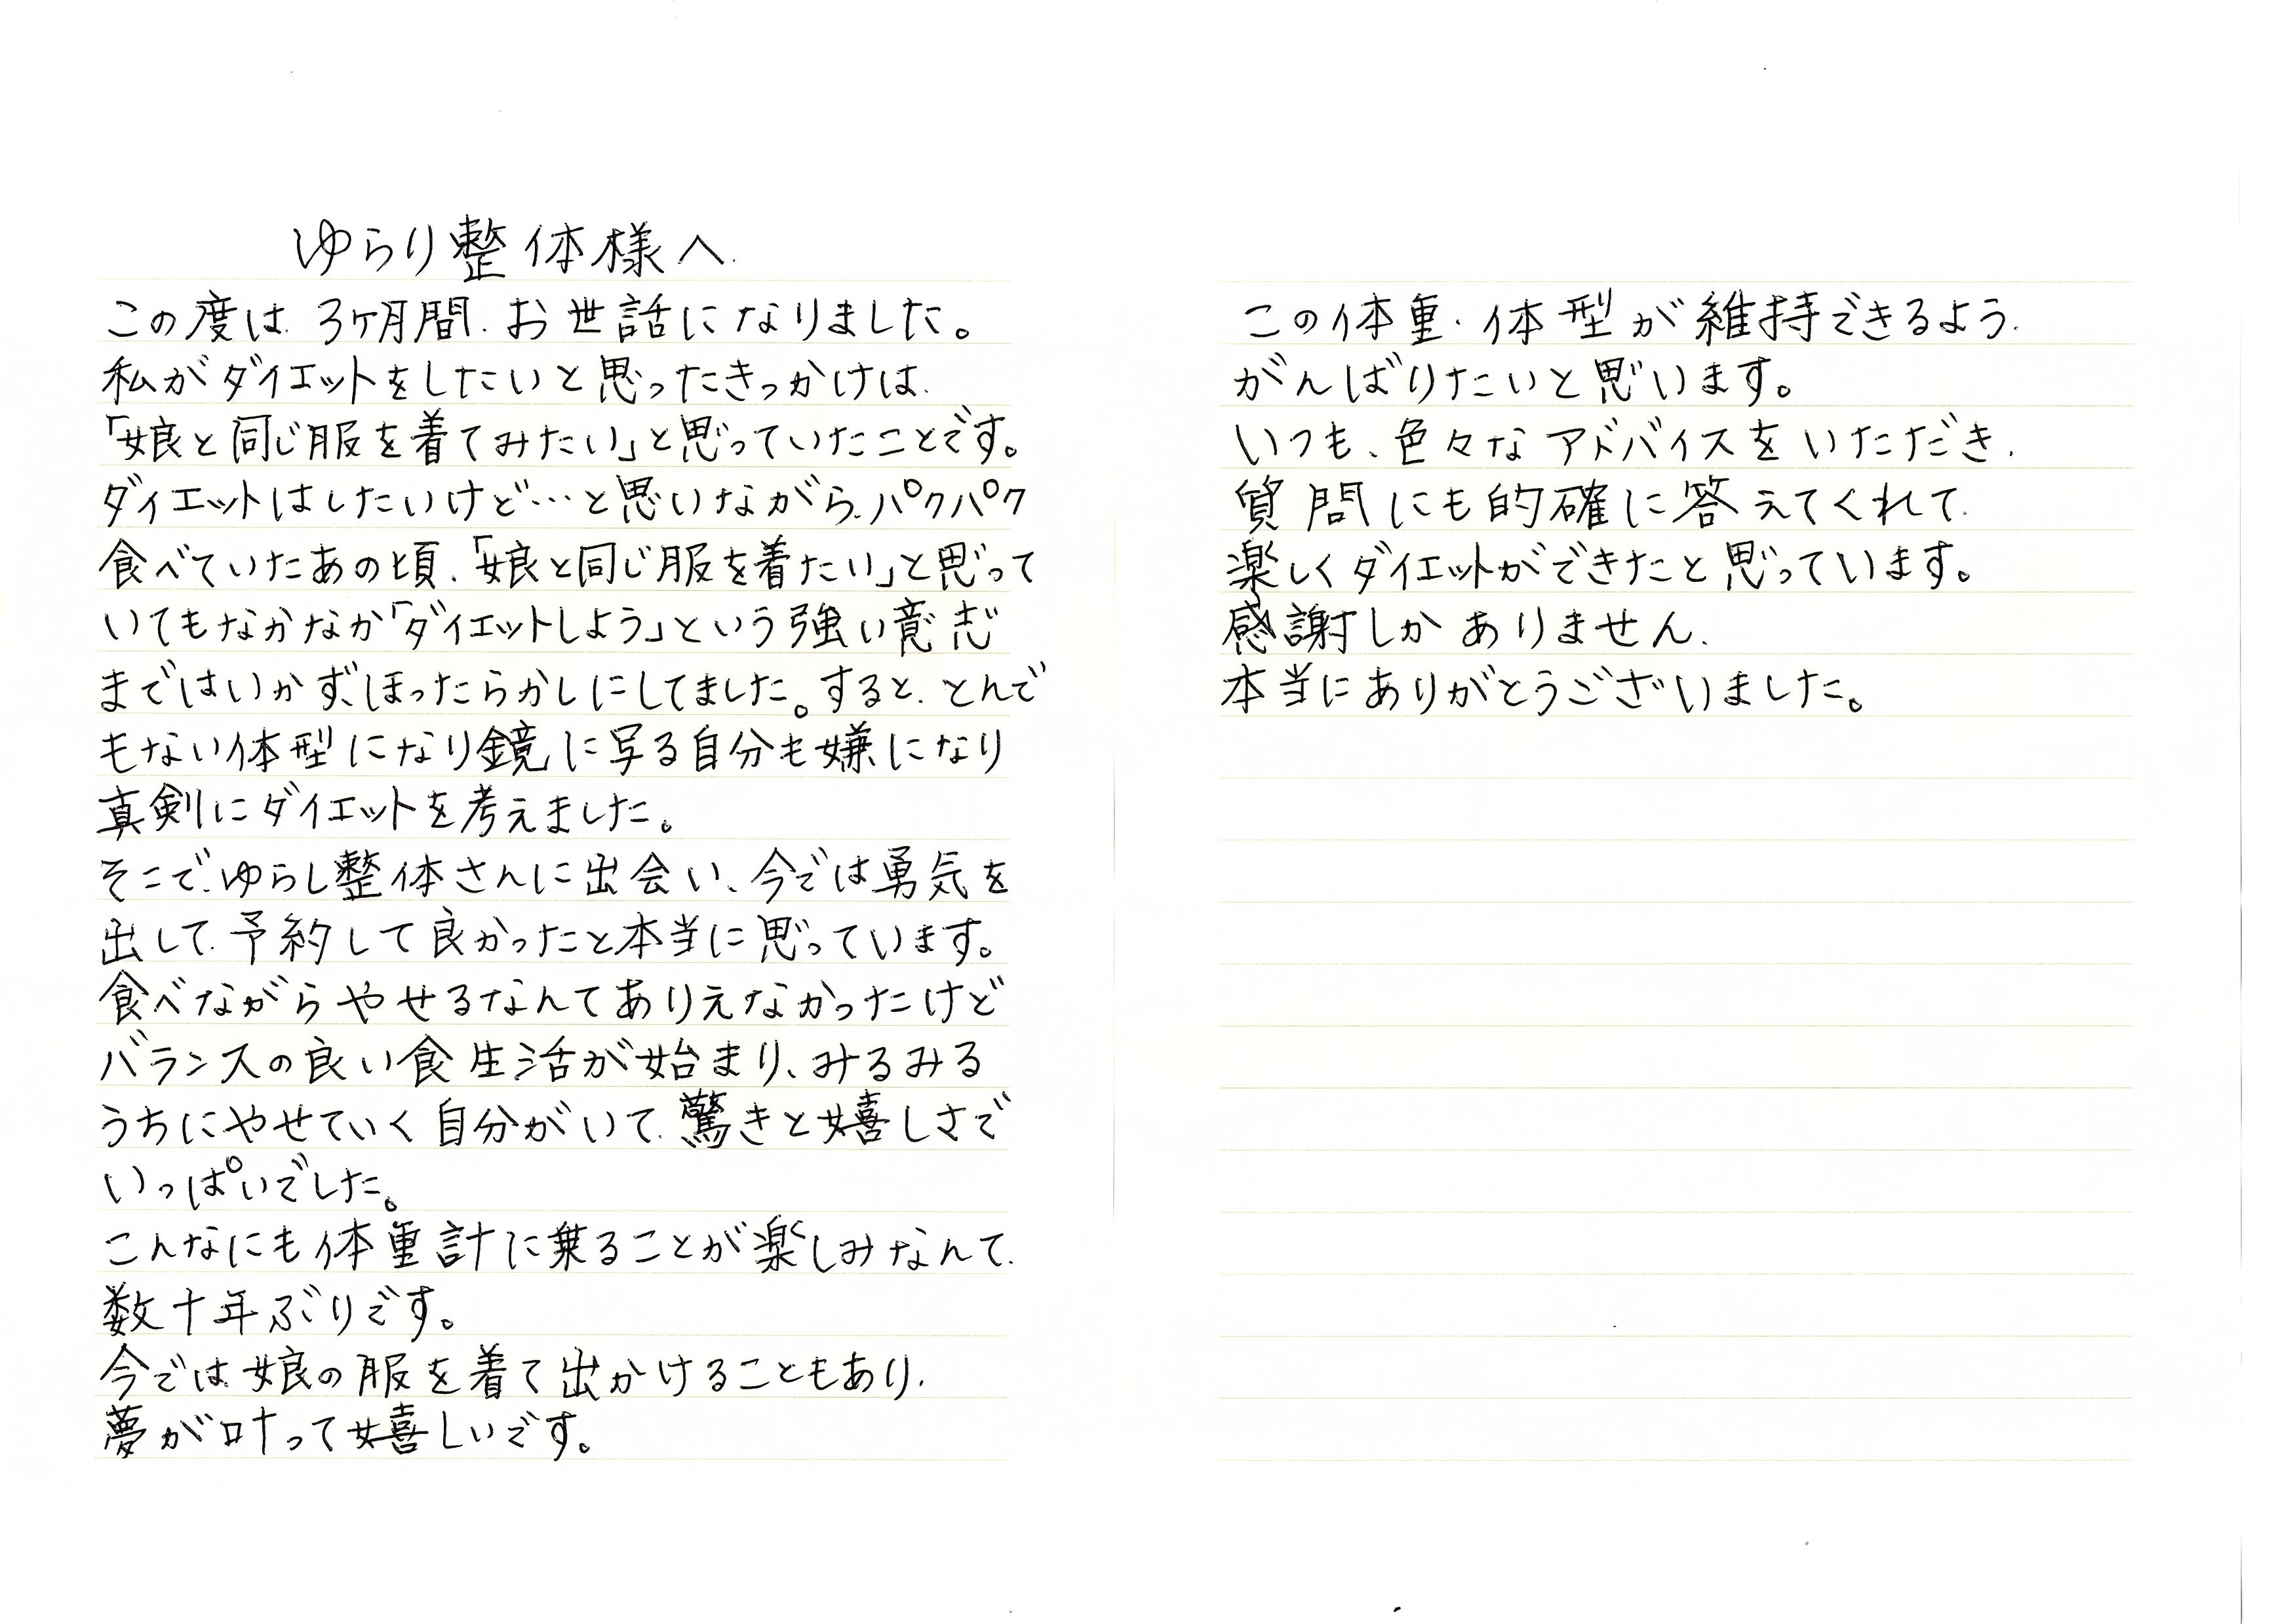 ゆらり整体様へ
この度は、3ヶ月間、お世話になりました。
私がダイエットをしたいと思ったきっかけは、
「娘と同じ服を着てみたい」と思っていたことです。
ダイエットはしたいけど…と思いながら、パクパク
食べていたあの頃、「娘と同じ服を着たい」と思って
いてもなかなか「ダイエットしよう」という強い意志
まではいかず、ほったらかしにしてました。すると、とんで
もない体型になり鏡に写る自分も嫌になり
真剣にダイエットを考えました。
そこで、ゆらし整体さんに出会い、今では勇気を
出して、予約して良かったと本当に思っています。
食べながらやせるなんてありえなかったけど
バランスの良い食生活が始まり、みるみる
うちにやせていく自分がいて、驚きと嬉しさで
いっぱいでした。
こんなにも体重計に乗ることが楽しみなんて、
数十年ぶりです。
今では、娘の服を着て出かけることもあり、
夢が叶って嬉しいです。
この体重・体型が維持できるよう、
がんばりたいと思います。
いつも、色々なアドバイスをいただき、
質問にも的確に答えてくれて、
楽しくダイエットができたと思っています。
感謝しかありません、
本当にありがとうございました。